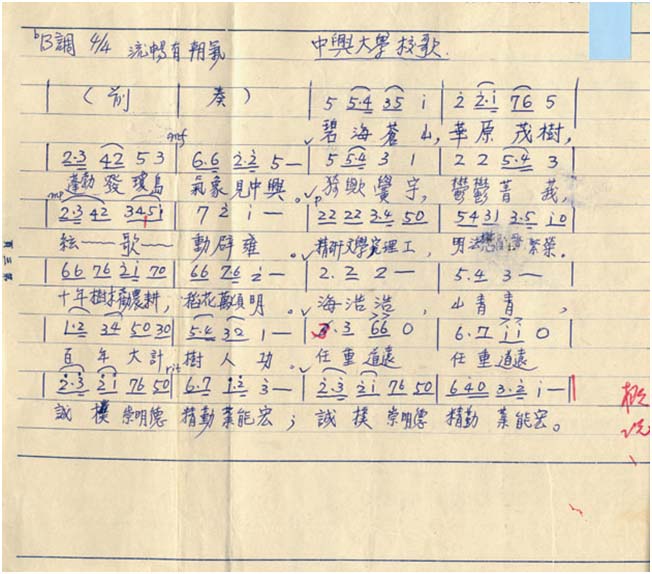 ᵇB調 4/4 流暢有朝氣 中興大學校歌.
| ( 前 | 奏 ) | 5 5·4 35 i | 2 2·i 76 5 |
碧 海 蒼 山, 華 原 茂 樹,
2·3 42 5 3 | 6·6 2·2 5— | 5 5·4 3 1 | 2 2 5·4 3 |
mf
蓬勃 發 環島 氣象 見中興。 猗歟 黌 宇, 鬱鬱 菁 莪,
mp p
| 2·3 42 3451 | 7 2 i — | 22 22 3·4 50 | 54 31 3·5 i0 |
絃 — 歌 — 動 辟 雍 。 精研文學究理工, 明法 繁榮。
| 66 76 2i 70 | 66 76 2 — | 2·2 2 — | 5·4 3 — |
十年樹木勤農耕, 稻花萬頃明。 海浩浩, 山青青,
| 1·2 34 50 30 | 5·4 32 1— | ·3 66 0 | 6·7 ii 0 |
百 年 大計 樹 人 功 。 任 重 道遠 任 重 道遠
rit
| 2·3 2i 76 50 | 6·7 i·2 3 — | 2·3 2i 76 50 | 640 3·2 i— ||
誠 樸 崇明德 精勤 業能宏; 誠 樸 崇明德 精勤 業能宏。